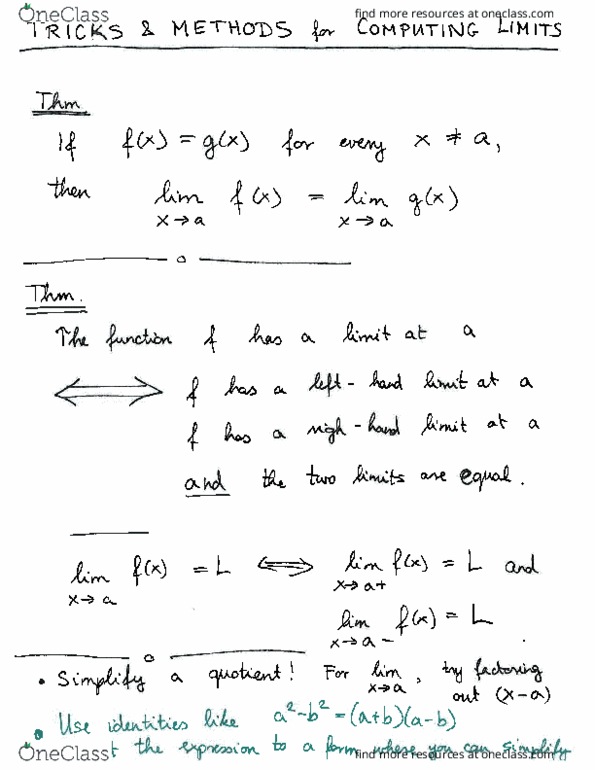 OneClass
find more resources at oneclass.com
TRICKS & METHODS for COMPUTING LIMITS
Thm.
If f(x) = g(x) for every x ≠ a,
then lim x→a f(x) = lim x→a g(x)
Thm.
The function f has a limit at a
⟺ f has a left-hand limit at a
f has a righ-hand limit at a
and the two limits are equal.
lim x→a f(x) = L ⟺ lim x→a+ f(x) = L and
lim x→a- f(x) = L
• Simplify a quotient! For lim x→a, try factoring
out (x-a)
• Use identities like a²-b² = (a+b)(a-b)
the expression to a form where you can simplify
OneClass
find more resources at oneclass.com